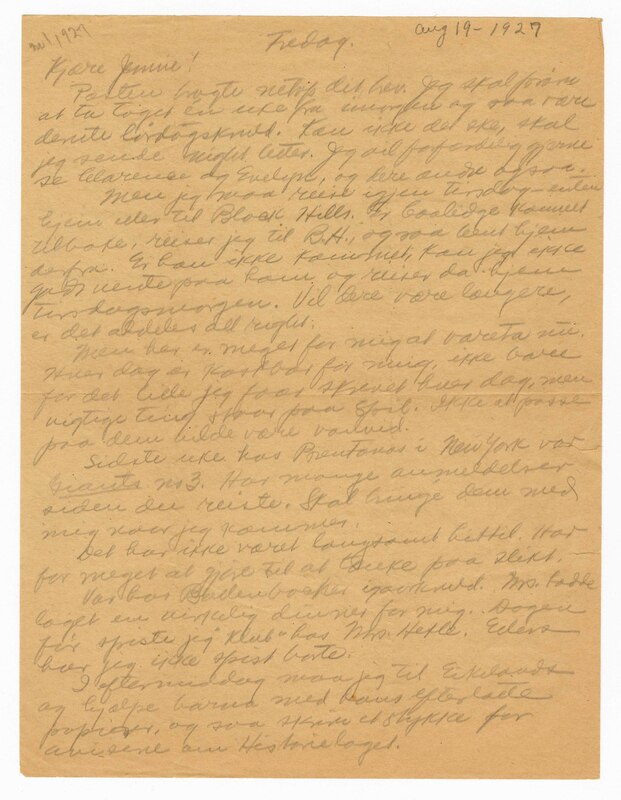 aug 19 - 1927
Fredag.
Kjære Jennie!
Posten bragte netop det brev. Jeg skal prøve
at ta toget en uke fra imorgen og saa være
dernte lørdagskveld. Kan ikke det ske, skal
jeg sende night letter. Jeg vil forfærdelig gjerne
se Clarence og Evelyn, og dere andre ogsaa.
Men jeg maa reise igjen tirsdag – enten
hjem eller til Black Hills. Er Coolidge kommet
tilbake, reiser jeg til B.H., og saa bent hjem
derfra. Er han ikke kommet, kan jeg ikke
gaa vente paa ham og reiser da hjem
tirsdagsmorgen. Vil dere være længere,
er det aldeles all right.
Men her er meget for mig at vareta nu.
Hver dag er kostbar for mig, ikke bare
for det lille jeg faar skrevet hver dag, men
vigtige ting staar paa spil. Ikke at passe
paa dem vilde være vanvid.
Sidste uke hos Brentanos i New York var
Giants no 3. Har mange anmeldelser
siden du reiste. Skal bringe dem med
mig naar jeg kommer.
Det har ikke været langsomt hittil. Har
for meget at gjøre til at tænke paa slikt.
Var hos Bodenbocker igaarkveld. Mrs.
laget en virkelig dinner for mig. Dagen
før spiste jeg "Klub" hos Mrs. Hefle. Ellers
har jeg ikke spist borte.
I eftermiddag maa jeg til Eikelands
og hjælpe barna med hans efterladte
papirer, og saa skrive et stykke for
avisene om Historielaget.